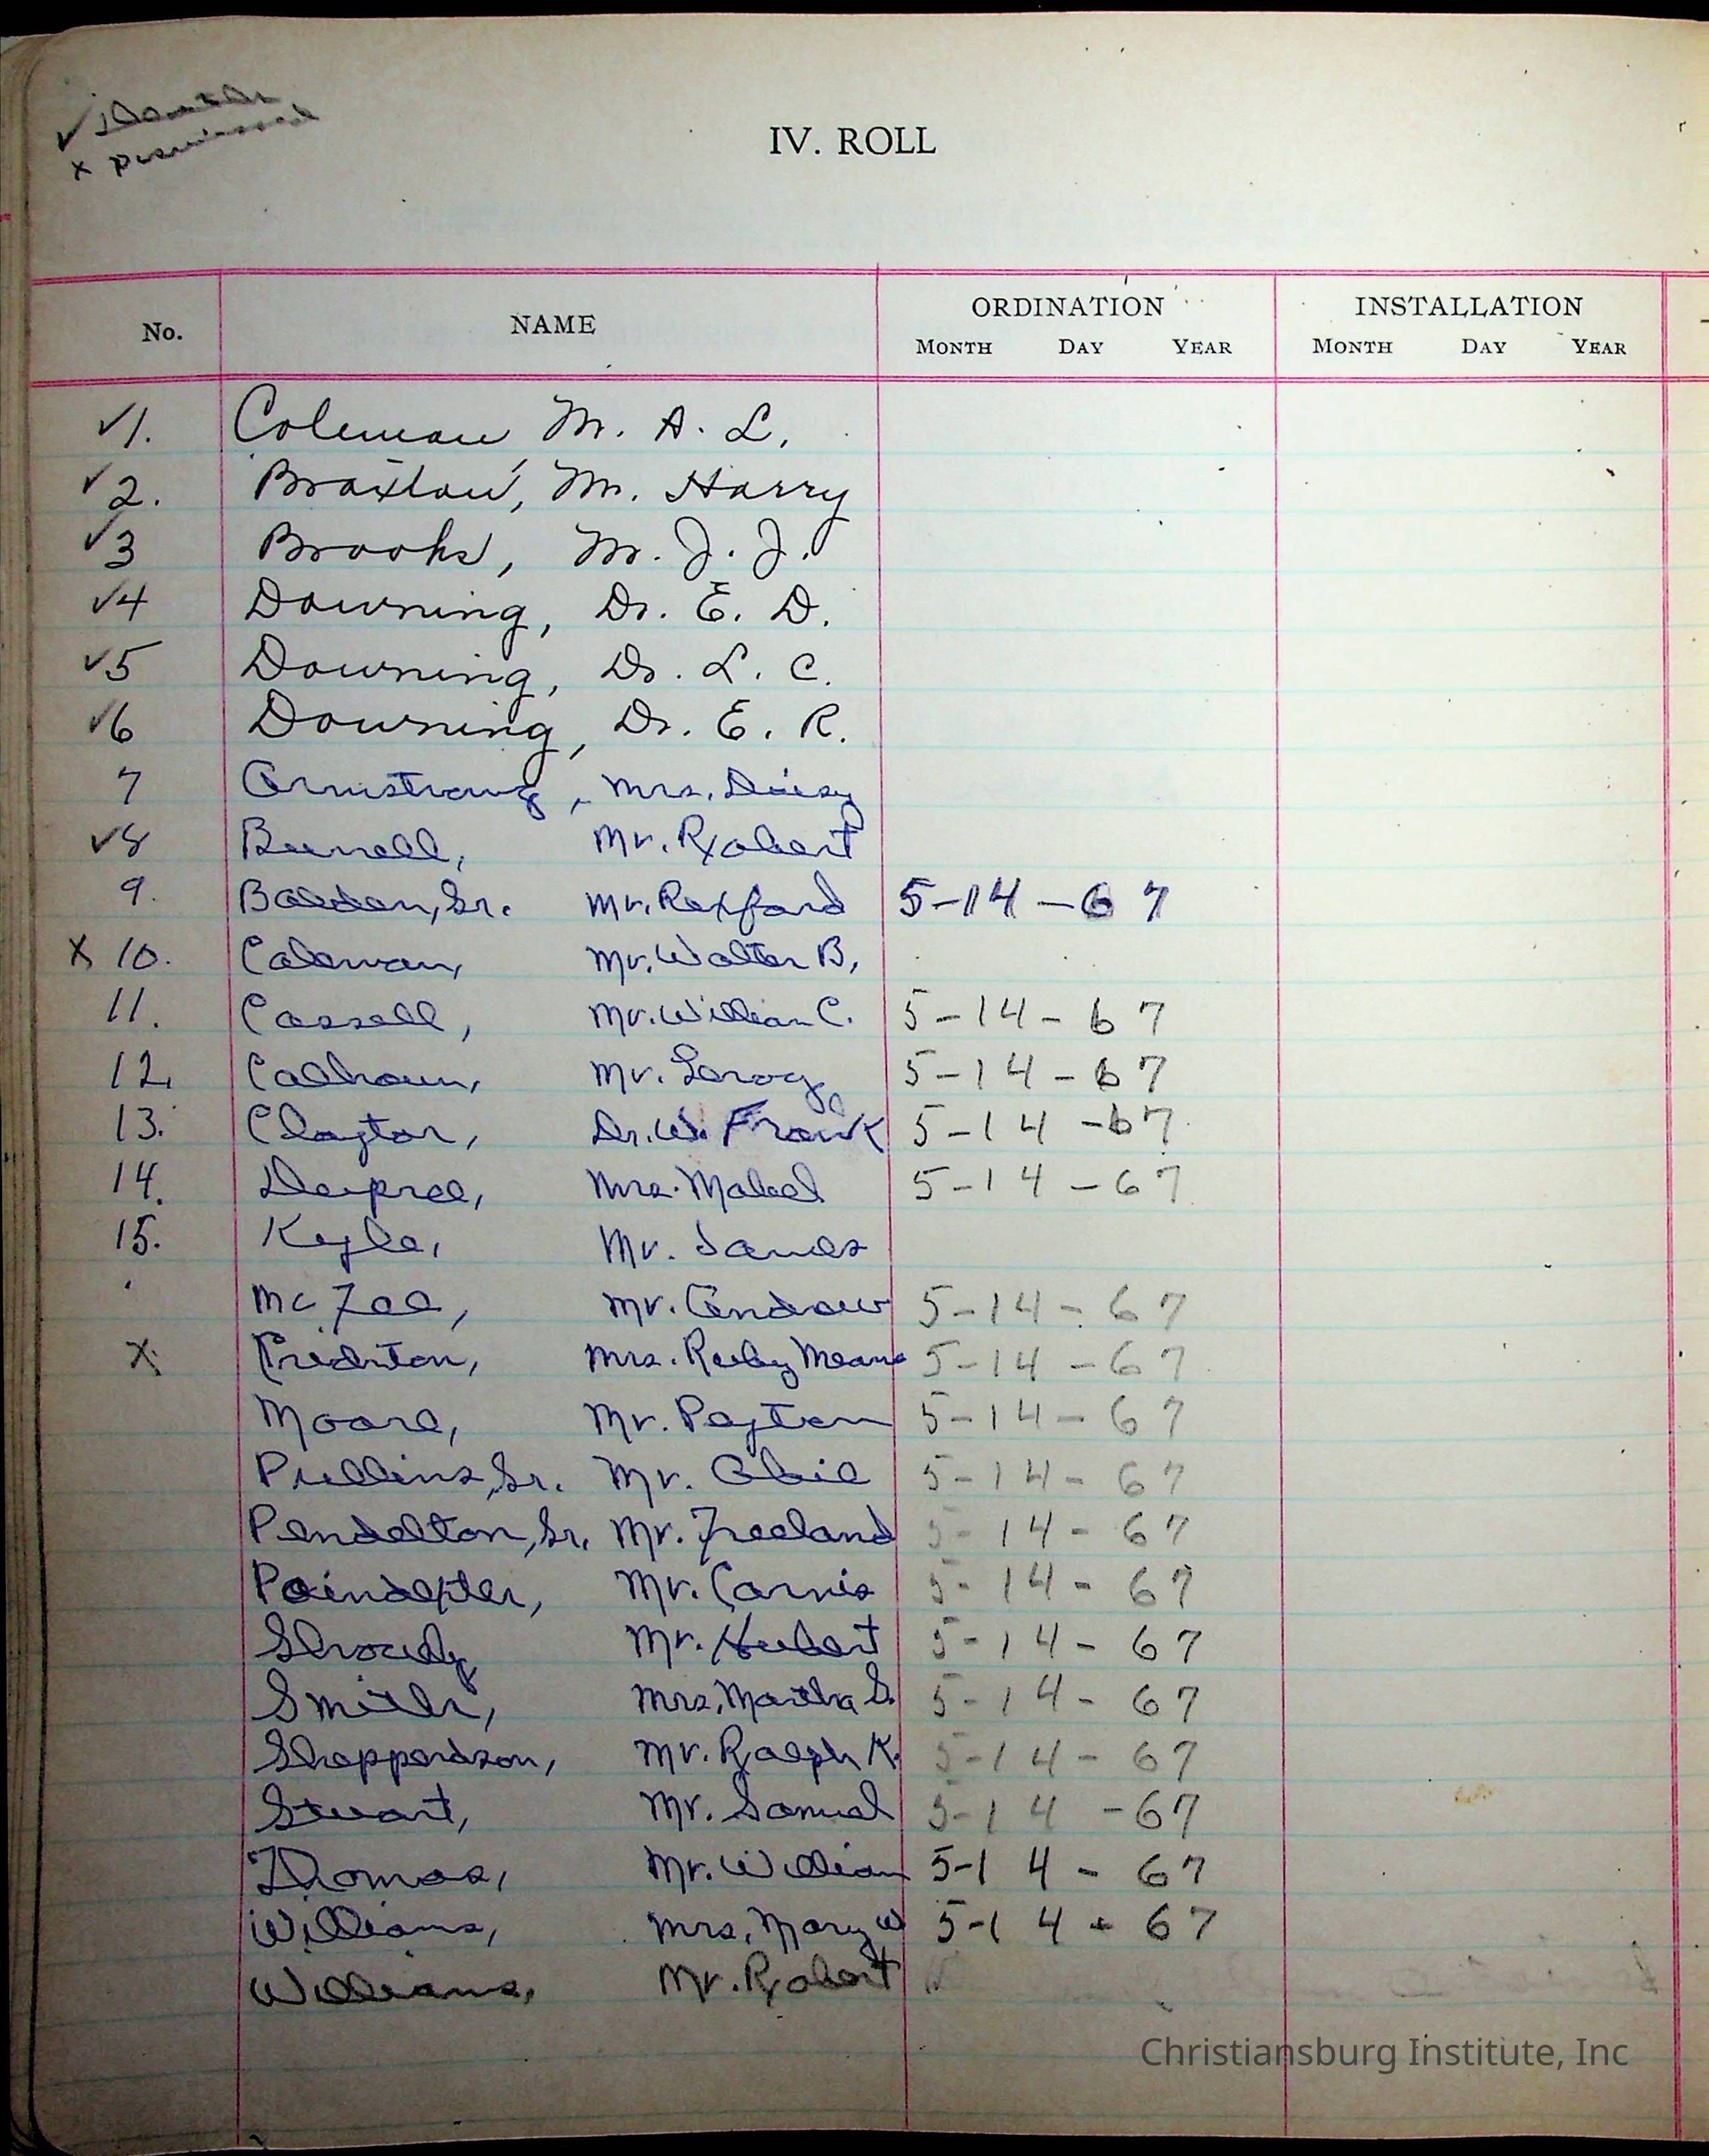 ✓ Death
x Dismissed
IV. ROLL
No. NAME ORDINATION INSTALLATION
MONTH DAY YEAR MONTH DAY YEAR
✓1. Coleman, Mr. A. L.
✓2. Braxton, Mr. Harry
✓3 Brooks, Mr. J. J.
✓4 Downing, Dr. E. D.
✓5 Downing, Dr. L. C.
✓6 Downing, Dr. E. R.
7 Armstrong, Mrs. Daisy
✓8 Burrell, Mr. Robert
9. Bolden, Sr. Mr. Rexford 5-14-67
X 10. Coleman, Mr. Walter B.
11. Cassell, Mr. William C. 5-14-67
12. Calhoun, Mr. Leroy 5-14-67
13. Claytor, Dr. W. Frank 5-14-67
14. Deupree, Mrs. Mabel 5-14-67
15. Kyle, Mr. James
McFee, Mr. Andrew 5-14-67
X Mrs. Ruby Means 5-14-67
Moore, Mr. Peyton 5-14-67
Pullins, Sr. Mr. Obie 5-14-67
Pendelton, Sr. Mr. Freeland 5-14-67
Poindexter, Mr. Carnis 5-14-67
Shroudy Mr. Hubert 5-14-67
Smith, Mrs. Martha S. 5-14-67
Sheppardson, Mr. Ralph K. 5-14-67
Stuart, Mr. Samuel 5-14-67
Thomas, Mr. William 5-14-67
Williams, Mrs. Mary W 5-14-67
Williams, Mr. Robert
Christiansburg Institute, Inc